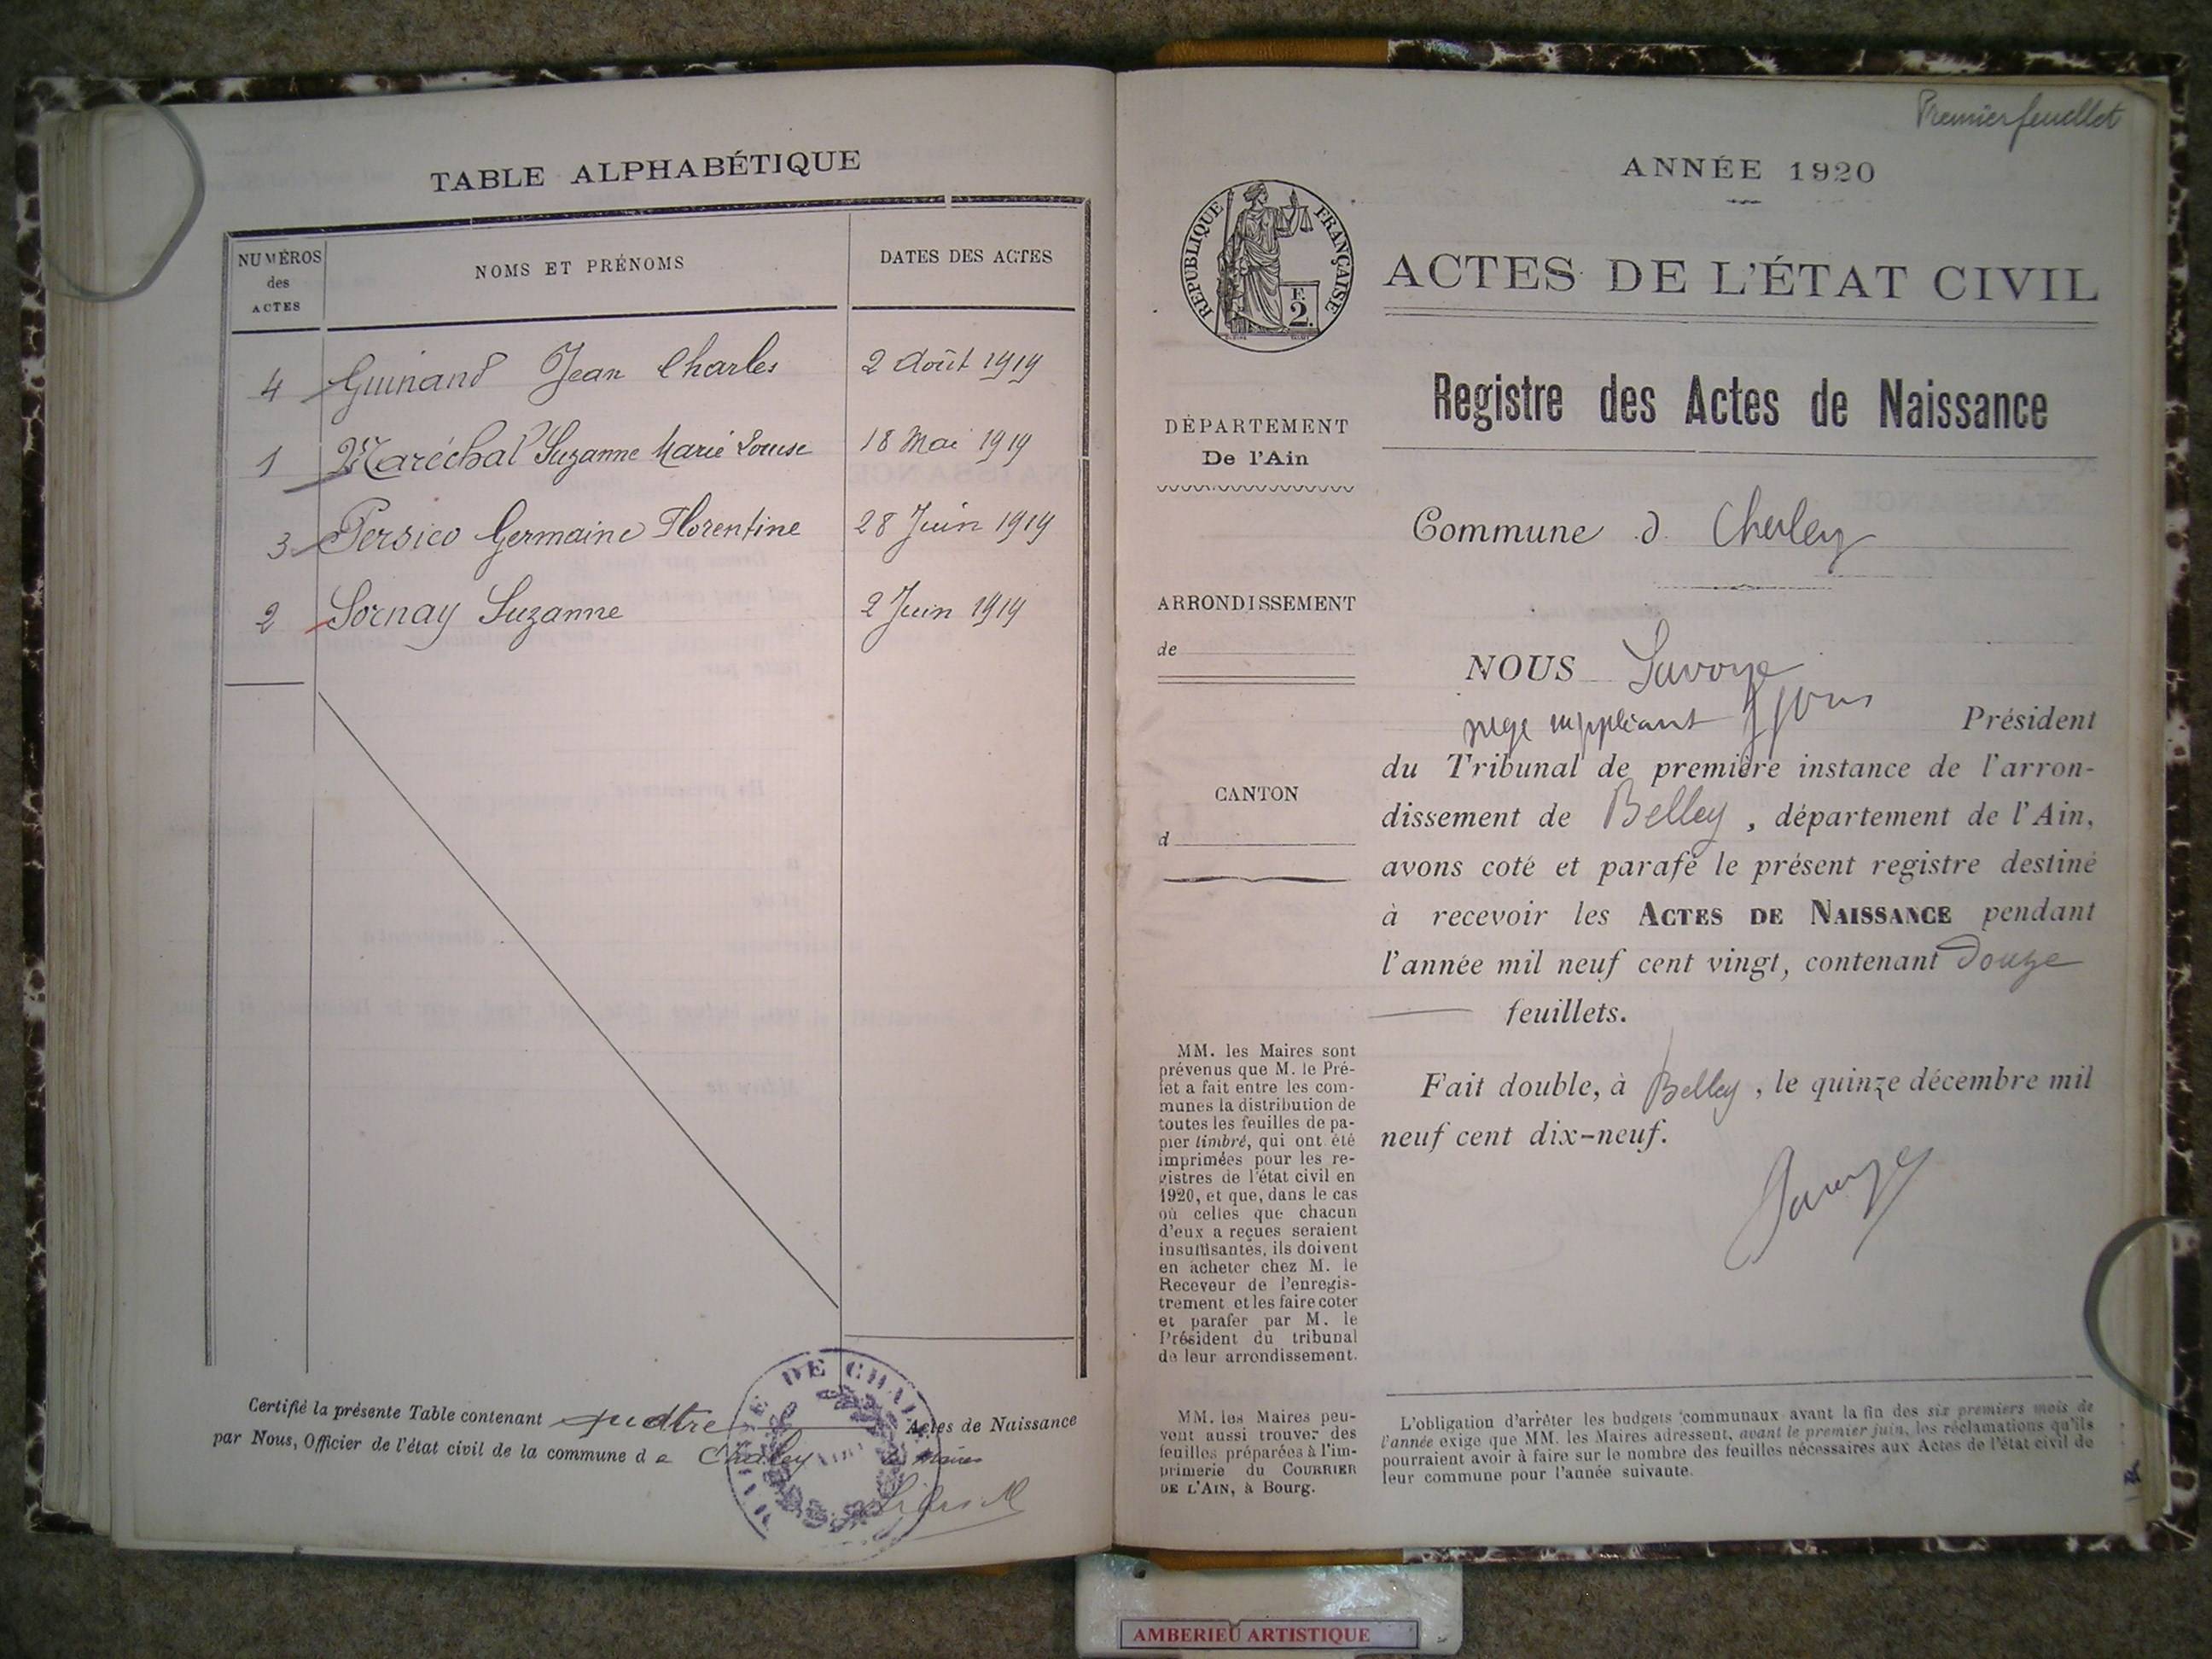 TABLE ALPHABÉTIQUE
NUMÉROS des ACTES
NOMS ET PRÉNOMS
DATES DES ACTES
4 Guinand Jean Charles 2 Août 1919
1 Maréchal Suzanne Marie Louise 18 Mai 1919
3 Persico Germaine Florentine 28 Juin 1919
2 Sornay Suzanne 2 Juin 1919
Certifié la présente Table contenant quatre Actes de Naissance
par Nous, Officier de l'état civil de la commune d e Chaley
Premier feuillet
ANNÉE 1920
RÉPUBLIQUE FRANÇAISE
F.
2.
ACTES DE L'ÉTAT CIVIL
Registre des Actes de Naissance
DÉPARTEMENT
De l'Ain
Commune d Chaley
ARRONDISSEMENT
de
NOUS Savoye
juge suppléant Président
du Tribunal de première instance de l'arron-
dissement de Belley, département de l'Ain,
avons coté et parafé le présent registre destiné
à recevoir les ACTES DE NAISSANCE pendant
l'année mil neuf cent vingt, contenant Douze
feuillets.
Fait double, à Belley, le quinze décembre mil
neuf cent dix-neuf.
CANTON
d
MM. les Maires sont
prévenus que M. le Pré-
fet a fait entre les com-
munes la distribution de
toutes les feuilles de pa-
pier timbré, qui ont été
imprimées pour les re-
gistres de l'état civil en
1920, et que, dans le cas
où celles que chacun
d'eux a reçues seraient
insuffisantes, ils doivent
en acheter chez M. le
Receveur de l'enregis-
trement et les faire coter
et parafer par M. le
Président du tribunal
de leur arrondissement.
MM. les Maires peu-
vent aussi trouver des
feuilles préparées à l'im-
primerie du COURRIER
DE L'AIN, à Bourg.
L'obligation d'arrêter les budgets communaux avant la fin des six premiers mois de
l'année exige que MM. les Maires adressent, avant le premier juin, les réclamations qu'ils
pourraient avoir à faire sur le nombre des feuilles nécessaires aux Actes de l'état civil de
leur commune pour l'année suivante.
AMBERIEU ARTISTIQUE